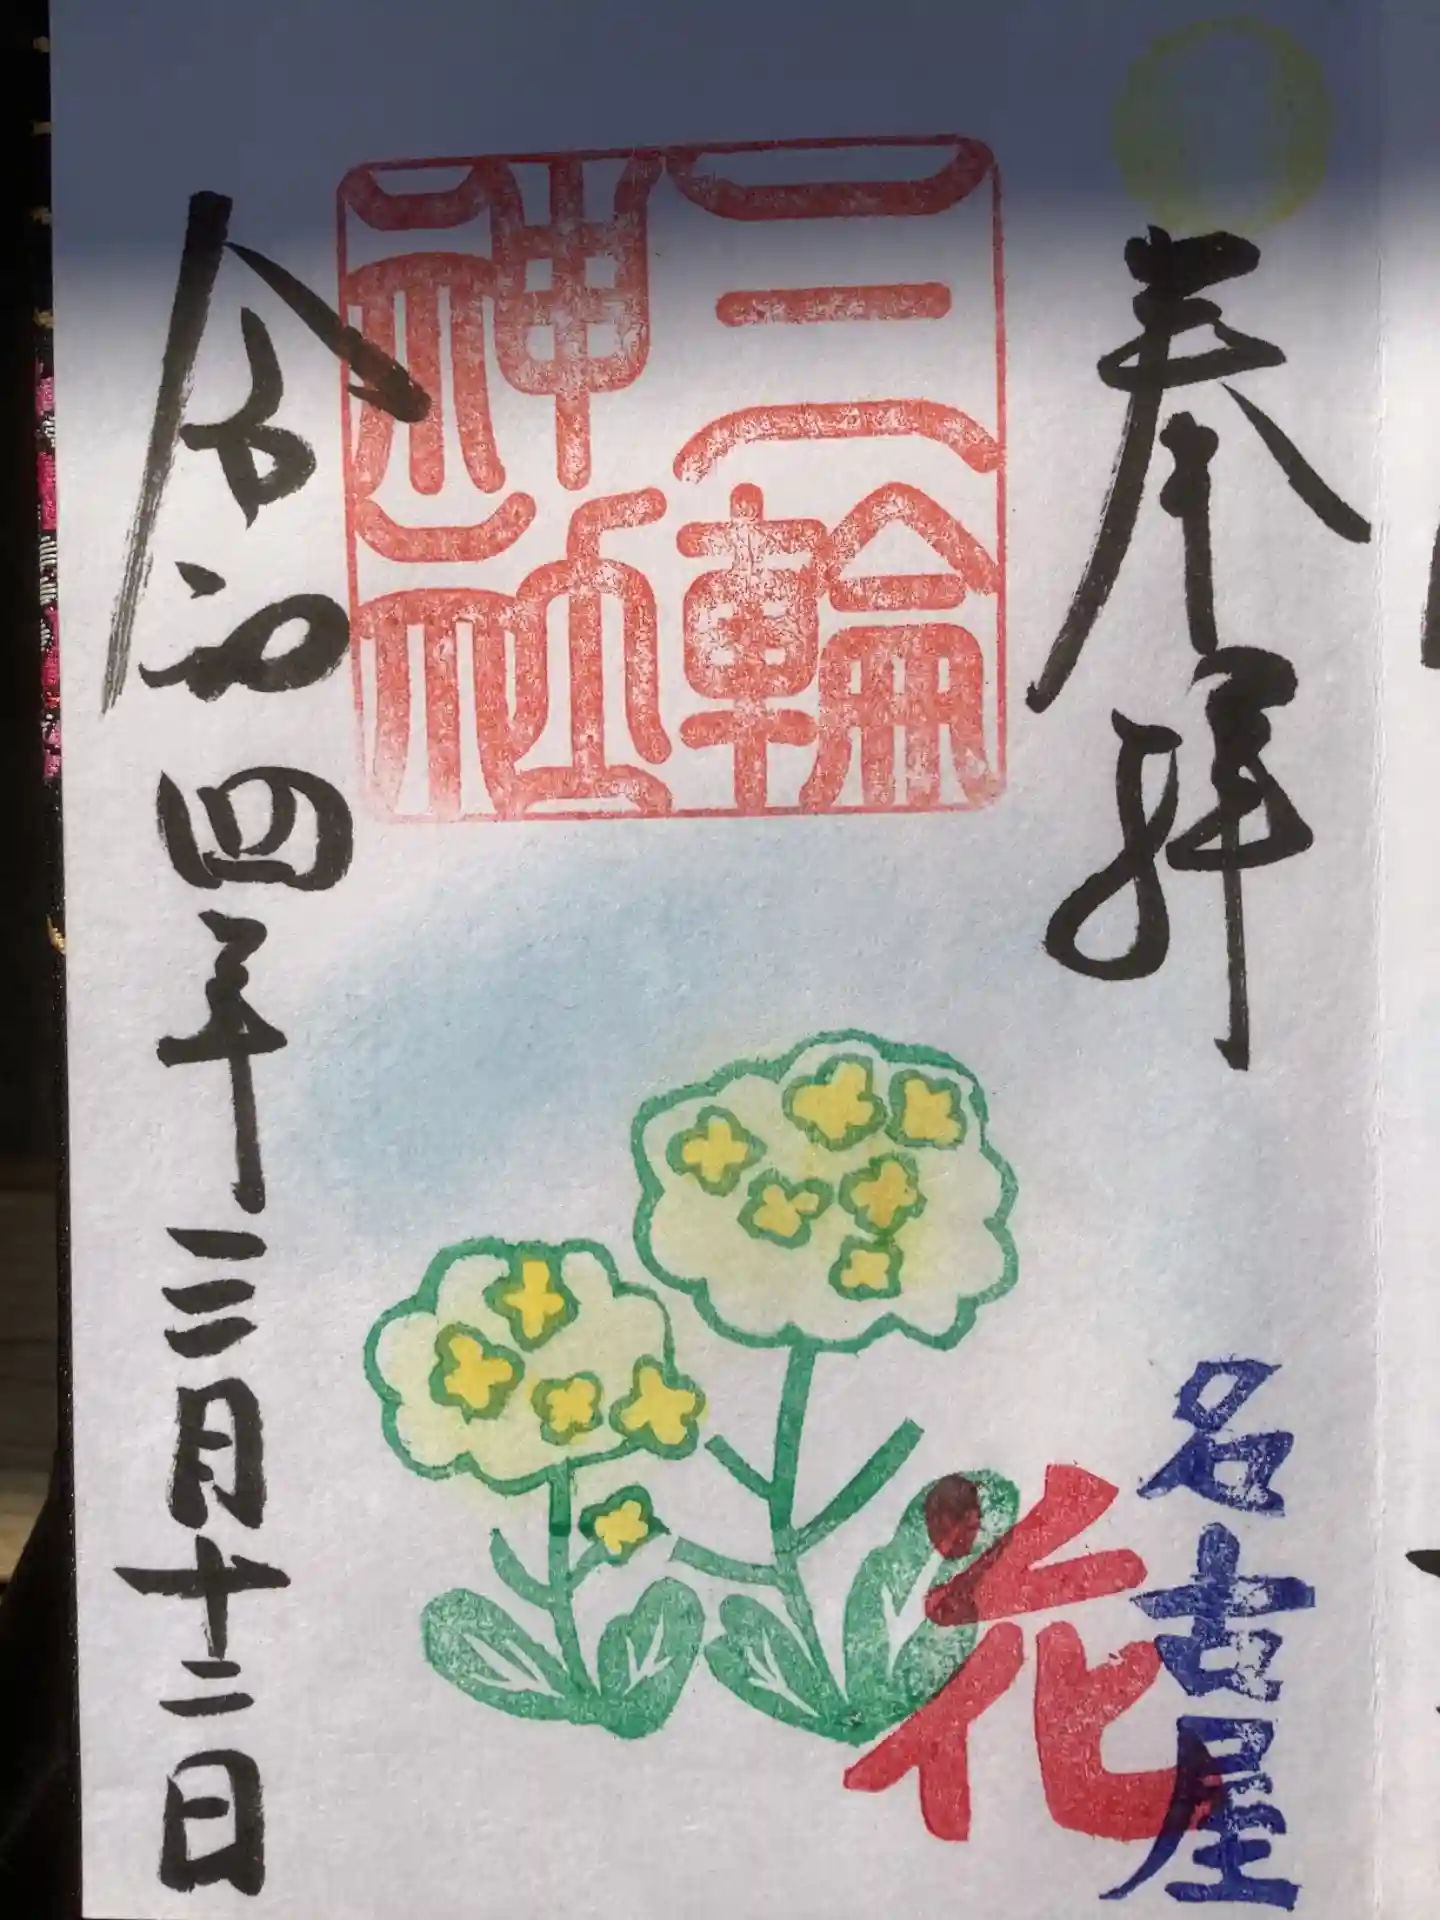 奉拝
名古屋
花
三輪
神社
令和四年三月十二日